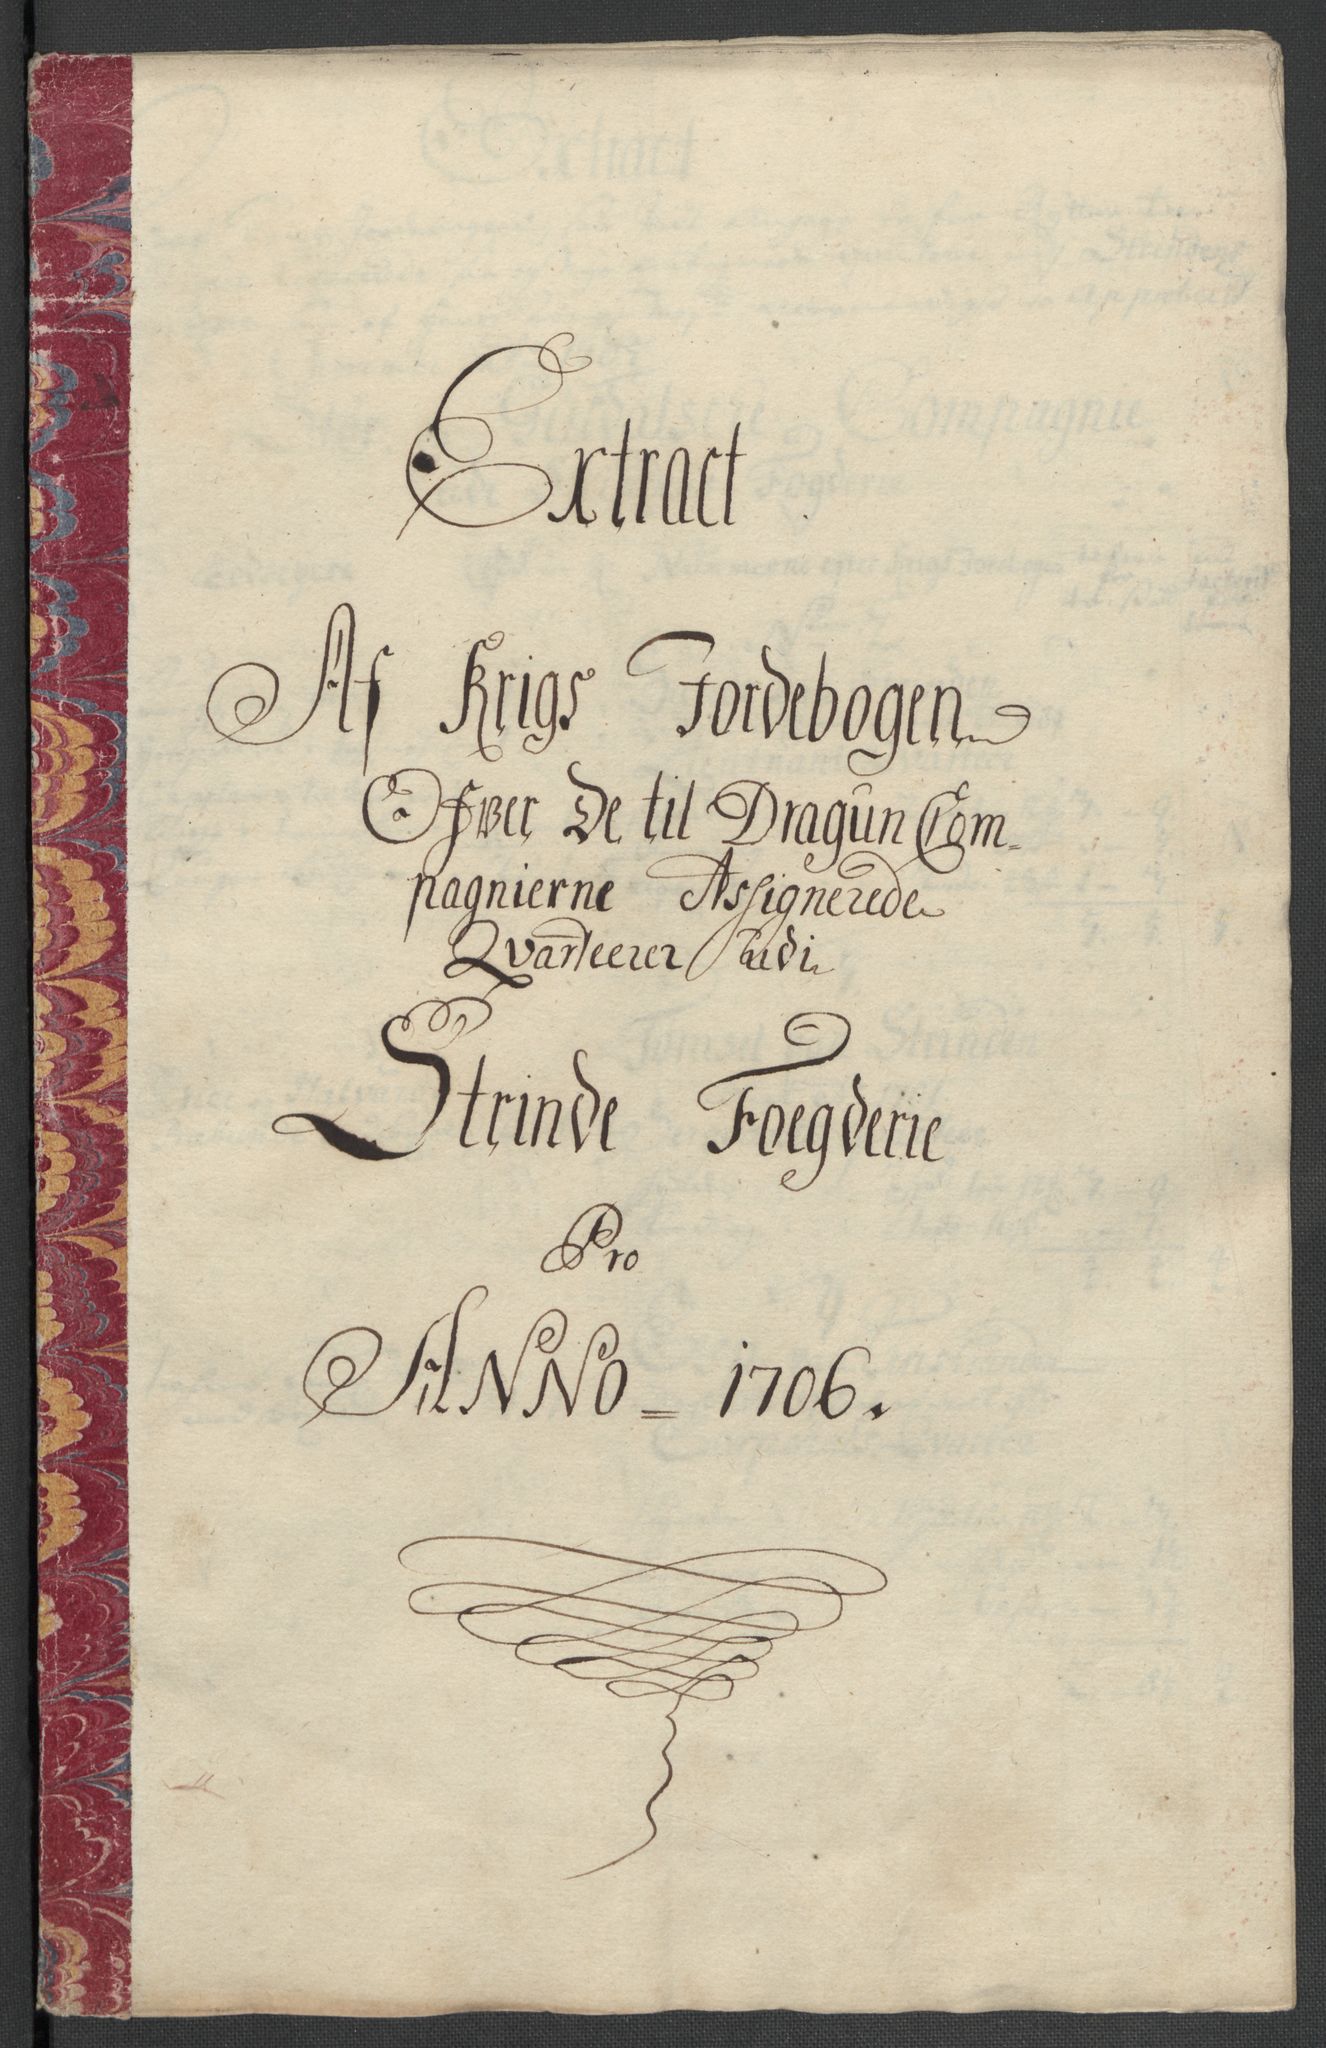 Extract
Af Krigs Jordebogen
Ofver De til Dragun Com=
pagnierne Assignerede
Qvarteerer udi
Strinde Foegderie
Pro
ANNO = 1706.